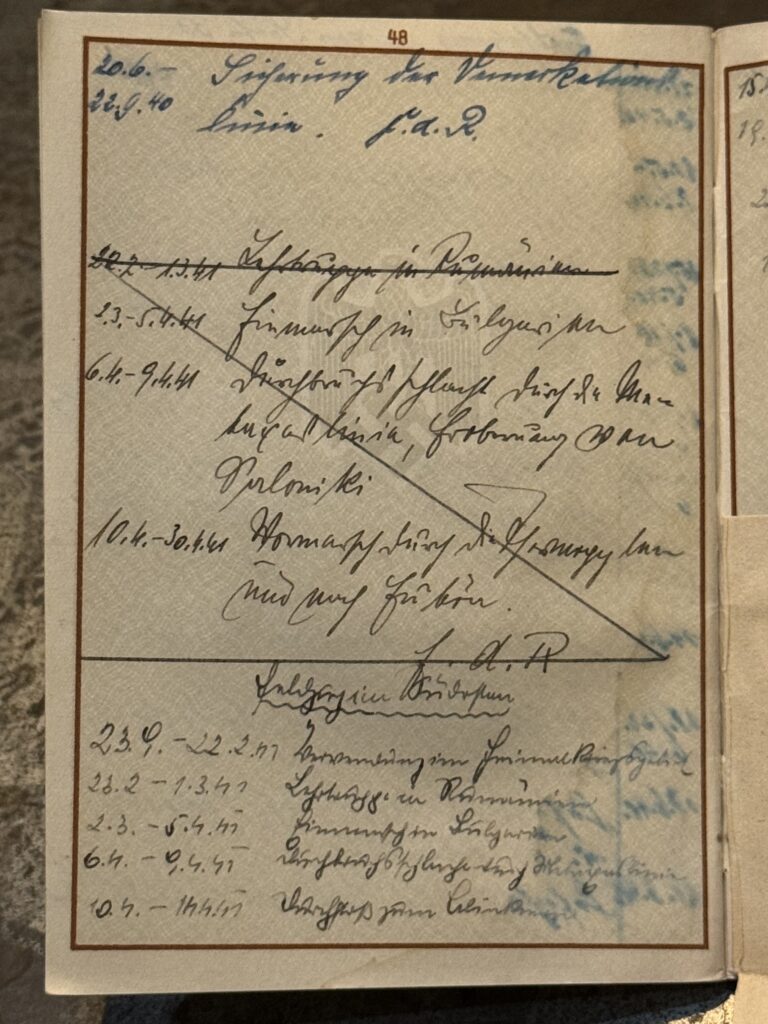 48
20.6.— Sicherung der Demarkations
22.9.40 linie. F.d.R.
22.2 – 1.3.41 Lehrtruppe in Rumänien
2.3.-5.4.41 Einmarsch in Bulgarien
6.4.-9.4.41 Durchbruchsschlacht durch die Me-
taxaslinie, Eroberung von
Saloniki
10.4.-30.4.41 Vormarsch durch die Thermopylen
und nach Euböa.
F. d. R
Feldzug im Südosten
23.9. – 22.2.41 Verwendung im Heimatkriegsgebiet
23.2 – 1.3.41 Lehrtruppe in Rumänien
2.3. – 5.4.41 Einmarsch in Bulgarien
6.4. – 9.4.41 Durchbruchsschlacht Metaxaslinie
10.4. – 14.4.41 Durchstoß zum
15
19.